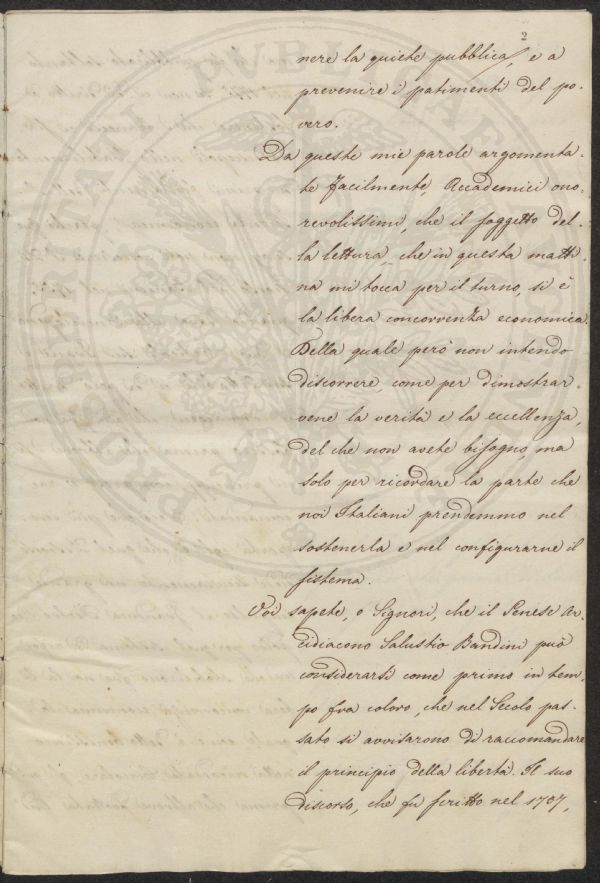 2
nere la quiete pubblica, e a
prevenire i patimenti del po-
vero.
Da queste mie parole argomenta-
te facilmente, Accademici ono-
revolissimi, che il soggetto del-
la lettura, che in questa matti-
na mi tocca per il turno, si è
la libera concorrenza economica.
Della quale però non intendo
discorrere, come per dimostrar-
vene la verità e la eccellenza,
del che non avete bisogno, ma
solo per ricordare la parte che
noi Italiani prendemmo nel
sostenerla e nel configurarne il
sistema.
Voi sapete, o Signori, che il Senese Ar-
cidiacono Salustio Bandini può
considerarsi come primo in tem-
po fra coloro, che nel Secolo pas-
sato si avvisarono di raccomandare
il principio della libertà. Il suo
discorso, che fu scritto nel 1707,
PROSPERITATI PUBLICAE